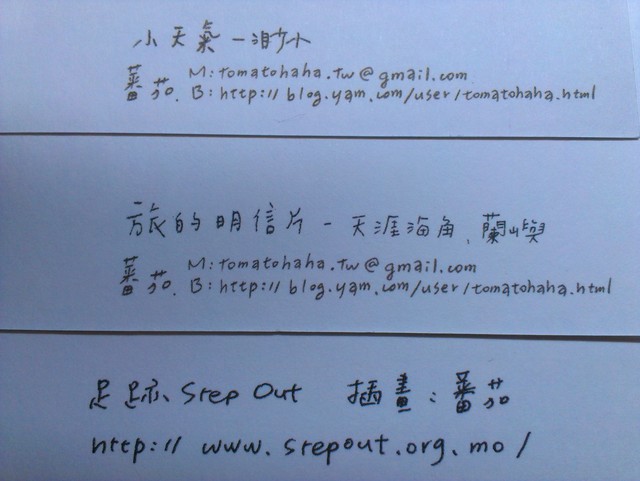 小天氣一渺小
蕃茄. M: tomatohaha.tw@gmail.com
B: http://blog.yam.com/user/tomatohaha.html
旅的明信片 - 天涯海角、蘭嶼
蕃茄. M: tomatohaha.tw@gmail.com
B: http://blog.yam.com/user/tomatohaha.html
足跡 Step Out 插畫：蕃茄
http:// www.stepout.org.mo/